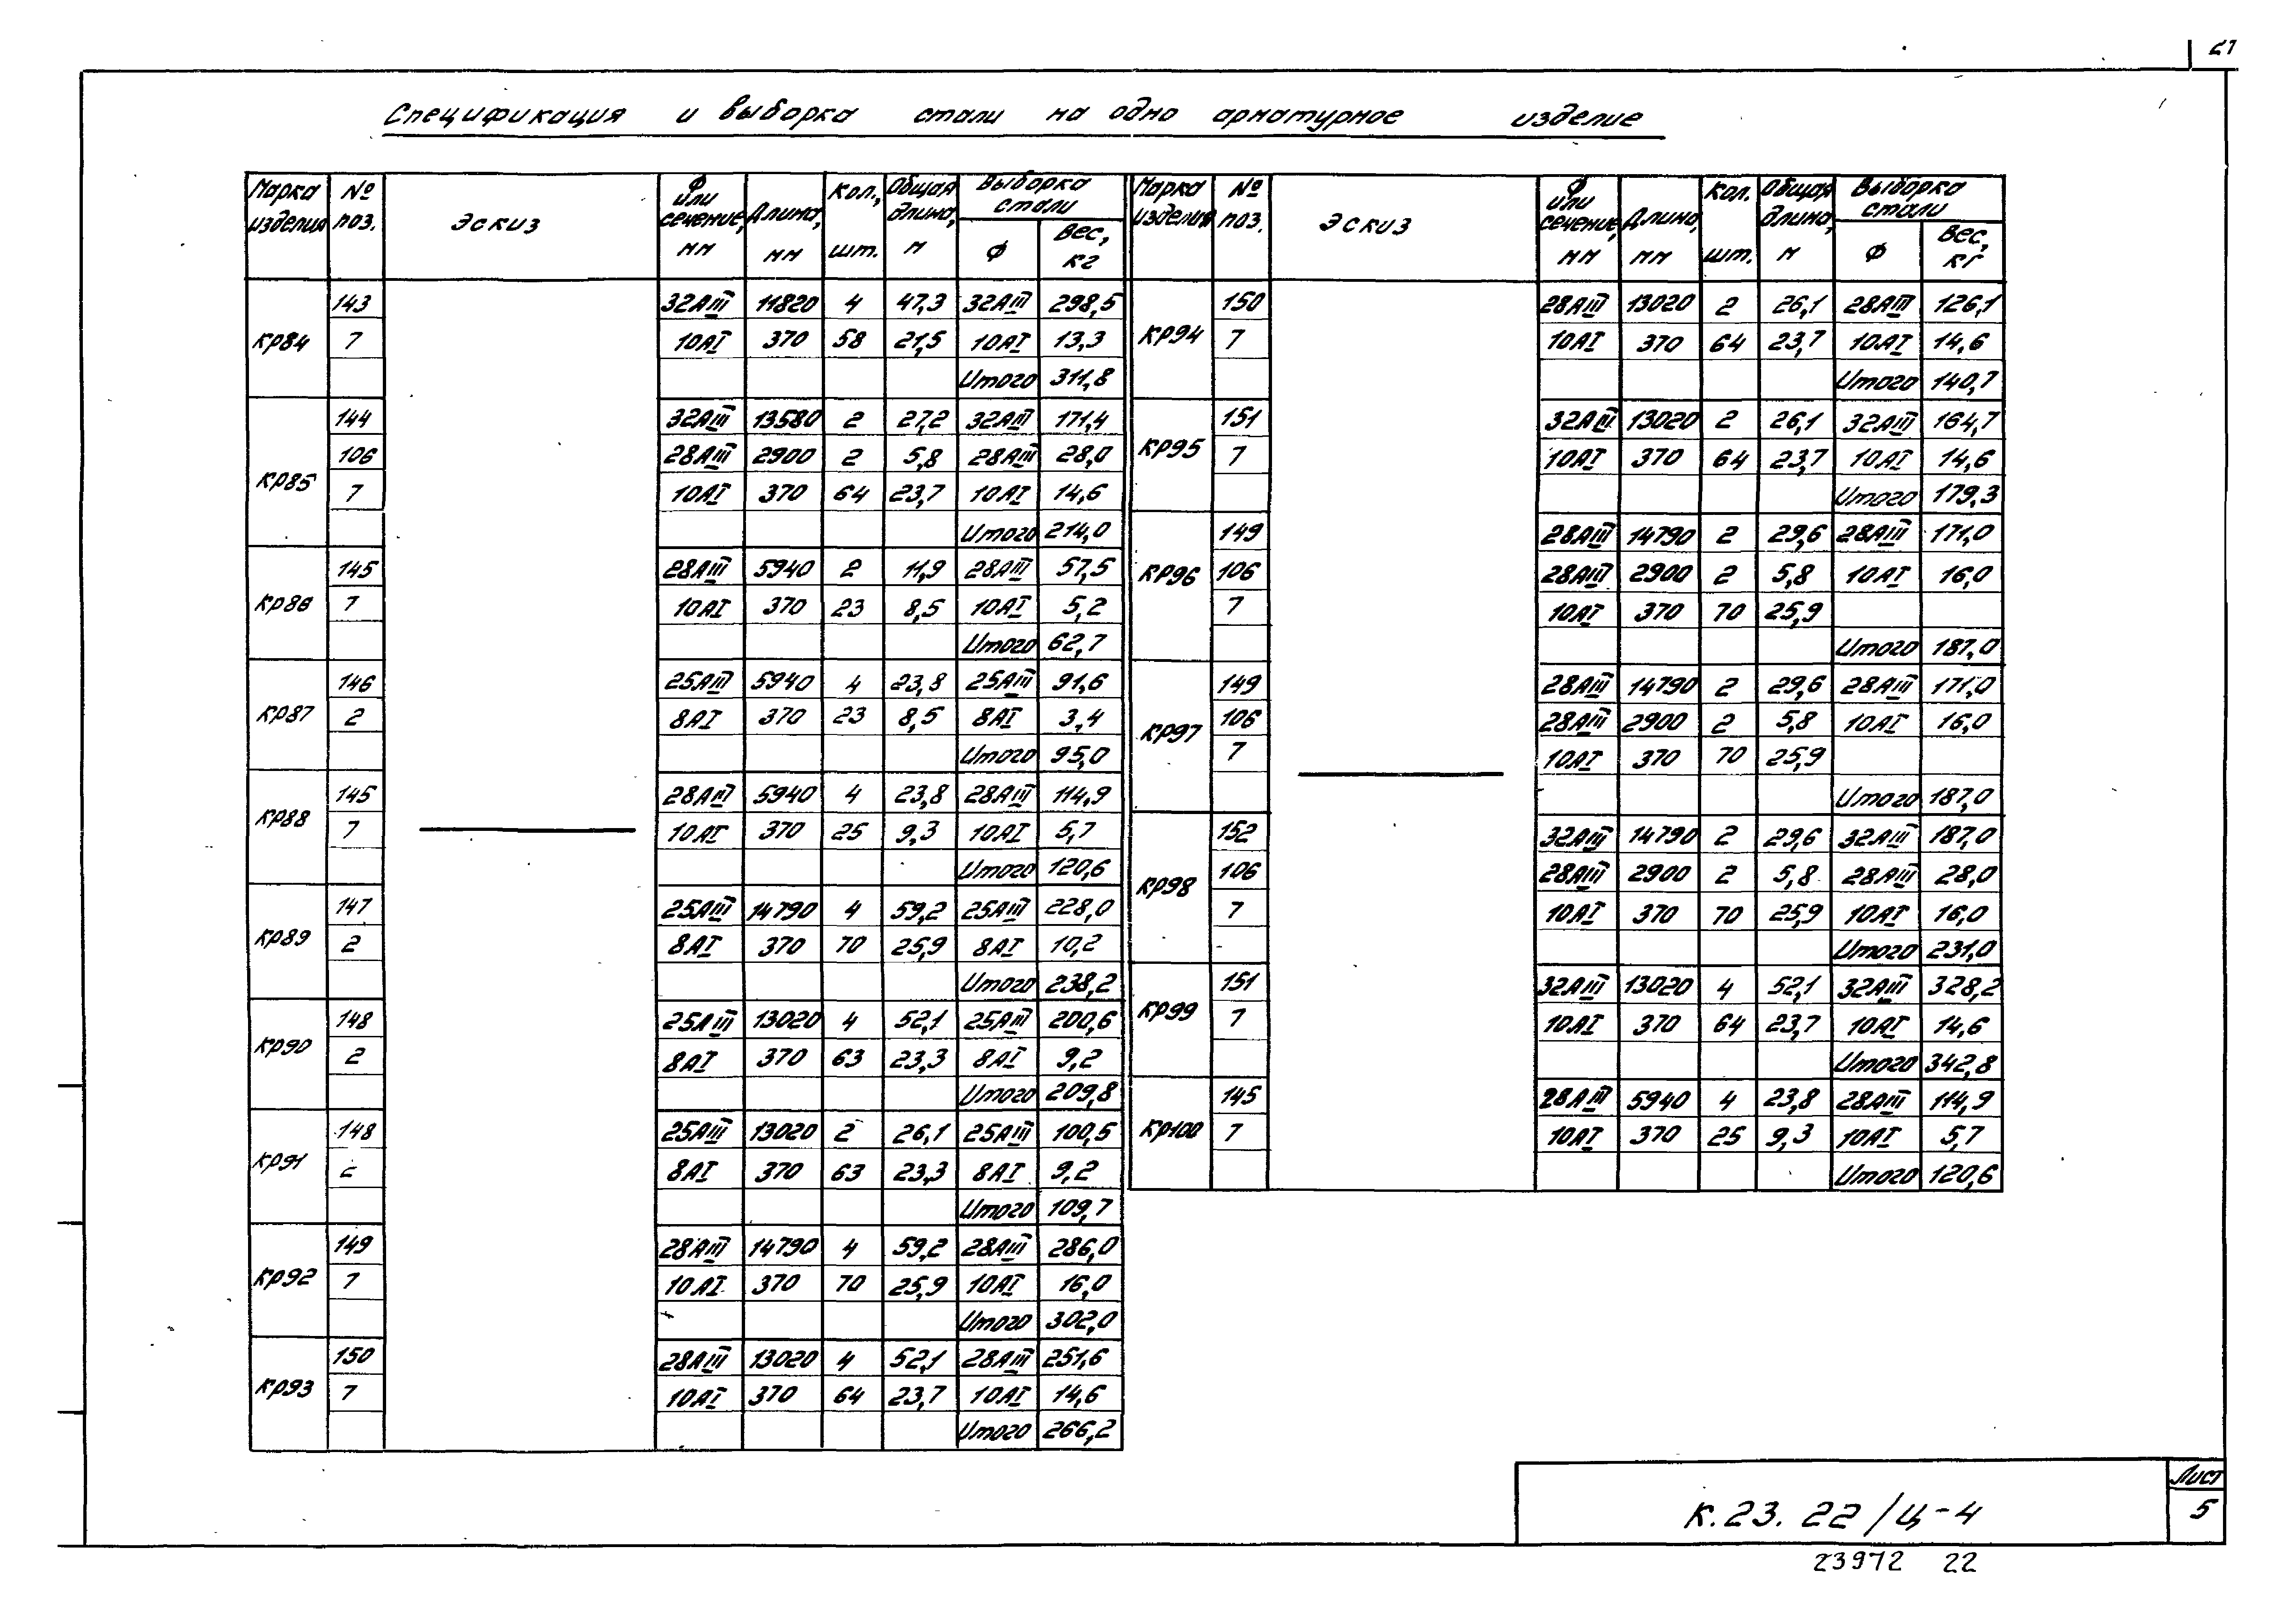 21
Спецификация и выборка стали на одно арматурное изделие
Марка изделия | № поз. | Эскиз | Ф или сечение, мм | Длина, мм | Кол., шт. | Общая длина, м | Выборка стали Ф | Вес, кг
КР84 | 143 | 32АIII | 11820 | 4 | 47,3 | 32АIII | 298,5
7 | 10АI | 370 | 58 | 21,5 | 10АI | 13,3
Итого 311,8
КР85 | 144 | 32АIII | 13580 | 2 | 27,2 | 32АIII | 171,4
106 | 28АIII | 2900 | 2 | 5,8 | 28АIII | 28,0
7 | 10АI | 370 | 64 | 23,7 | 10АI | 14,6
Итого 214,0
КР86 | 145 | 28АIII | 5940 | 2 | 11,9 | 28АIII | 57,5
7 | 10АI | 370 | 23 | 8,5 | 10АI | 5,2
Итого 62,7
КР87 | 146 | 25АIII | 5940 | 4 | 23,8 | 25АIII | 91,6
2 | 8АI | 370 | 23 | 8,5 | 8АI | 3,4
Итого 95,0
КР88 | 145 | 28АIII | 5940 | 4 | 23,8 | 28АIII | 114,9
7 | 10АI | 370 | 25 | 9,3 | 10АI | 5,7
Итого 120,6
КР89 | 147 | 25АIII | 14790 | 4 | 59,2 | 25АIII | 228,0
2 | 8АI | 370 | 70 | 25,9 | 8АI | 10,2
Итого 238,2
КР90 | 148 | 25АIII | 13020 | 4 | 52,1 | 25АIII | 200,6
2 | 8АI | 370 | 63 | 23,3 | 8АI | 9,2
Итого 209,8
КР91 | 148 | 25АIII | 13020 | 2 | 26,1 | 25АIII | 100,5
2 | 8АI | 370 | 63 | 23,3 | 8АI | 9,2
Итого 109,7
КР92 | 149 | 28АIII | 14790 | 4 | 59,2 | 28АIII | 286,0
7 | 10АI | 370 | 70 | 25,9 | 10АI | 16,0
Итого 302,0
КР93 | 150 | 28АIII | 13020 | 4 | 52,1 | 28АIII | 251,6
7 | 10АI | 370 | 64 | 23,7 | 10АI | 14,6
Итого 266,2
Марка изделия | № поз. | Эскиз | Ф или сечение, мм | Длина, мм | Кол. шт. | Общая длина, м | Выборка стали Ф | Вес, кг
КР94 | 150 | 28АIII | 13020 | 2 | 26,1 | 28АIII | 126,1
7 | 10АI | 370 | 64 | 23,7 | 10АI | 14,6
Итого 140,7
КР95 | 151 | 32АIII | 13020 | 2 | 26,1 | 32АIII | 164,7
7 | 10АI | 370 | 64 | 23,7 | 10АI | 14,6
Итого 179,3
КР96 | 149 | 28АIII | 14790 | 2 | 29,6 | 28АIII | 171,0
106 | 28АIII | 2900 | 2 | 5,8 | 10АI | 16,0
7 | 10АI | 370 | 70 | 25,9
Итого 187,0
КР97 | 149 | 28АIII | 14790 | 2 | 29,6 | 28АIII | 171,0
106 | 28АIII | 2900 | 2 | 5,8 | 10АI | 16,0
7 | 10АI | 370 | 70 | 25,9
Итого 187,0
КР98 | 152 | 32АIII | 14790 | 2 | 29,6 | 32АIII | 187,0
106 | 28АIII | 2900 | 2 | 5,8 | 28АIII | 28,0
7 | 10АI | 370 | 70 | 25,9 | 10АI | 16,0
Итого 231,0
КР99 | 151 | 32АIII | 13020 | 4 | 52,1 | 32АIII | 328,2
7 | 10АI | 370 | 64 | 23,7 | 10АI | 14,6
Итого 342,8
КР100 | 145 | 28АIII | 5940 | 4 | 23,8 | 28АIII | 114,9
7 | 10АI | 370 | 25 | 9,3 | 10АI | 5,7
Итого 120,6
К.23.22/Ц-4
Лист
5
23972 22